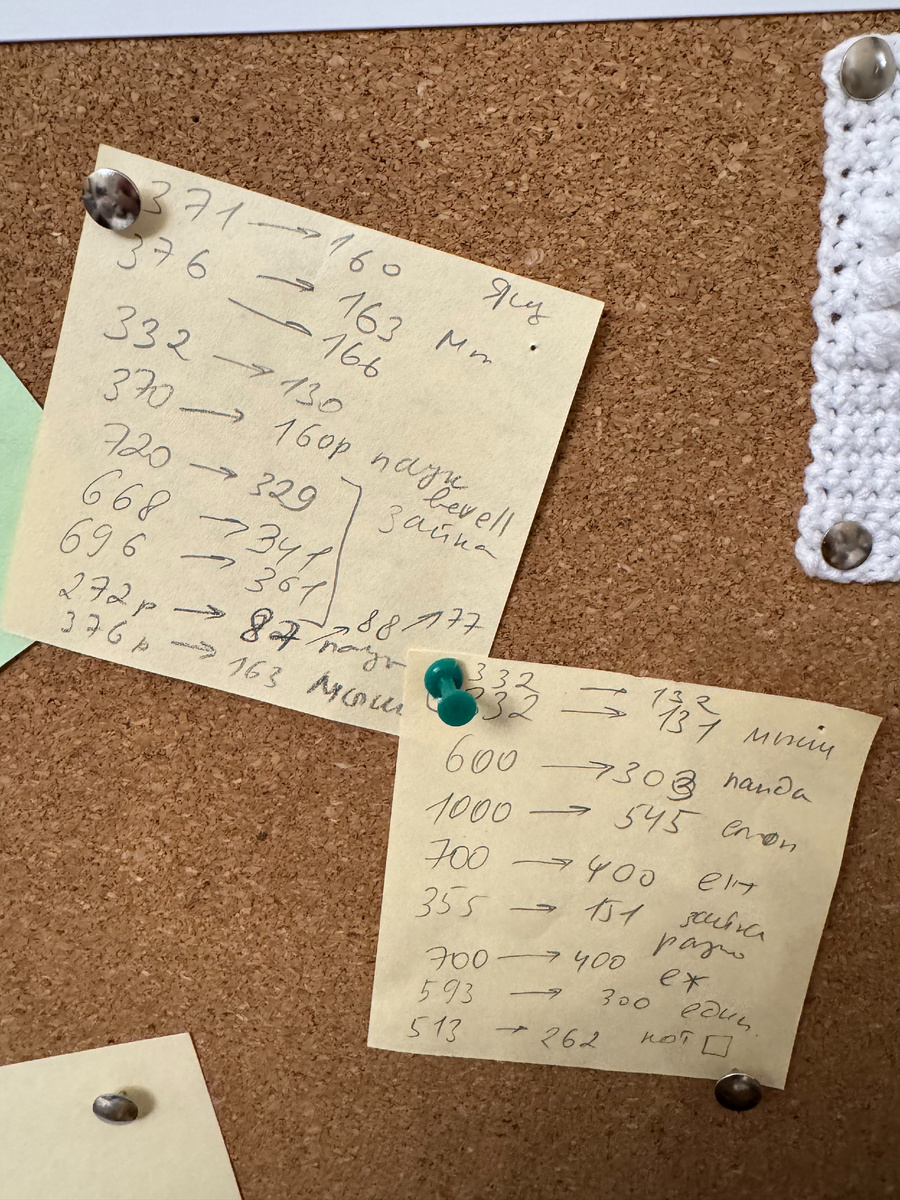 371 → 160
376 → 163
→ 166
332 → 130
370 → 160р паук
720 → 329 bevell
668 → 341 зайка
696 → 361
272р → 87 → 88 → 177
376р → 163 мыши
332 → 132
332 → 131 мыши
600 → 303 панда
1000 → 545
700 → 400
355 → 151 зайка
700 → 400 еж
593 → 300 един
513 → 262 кот □